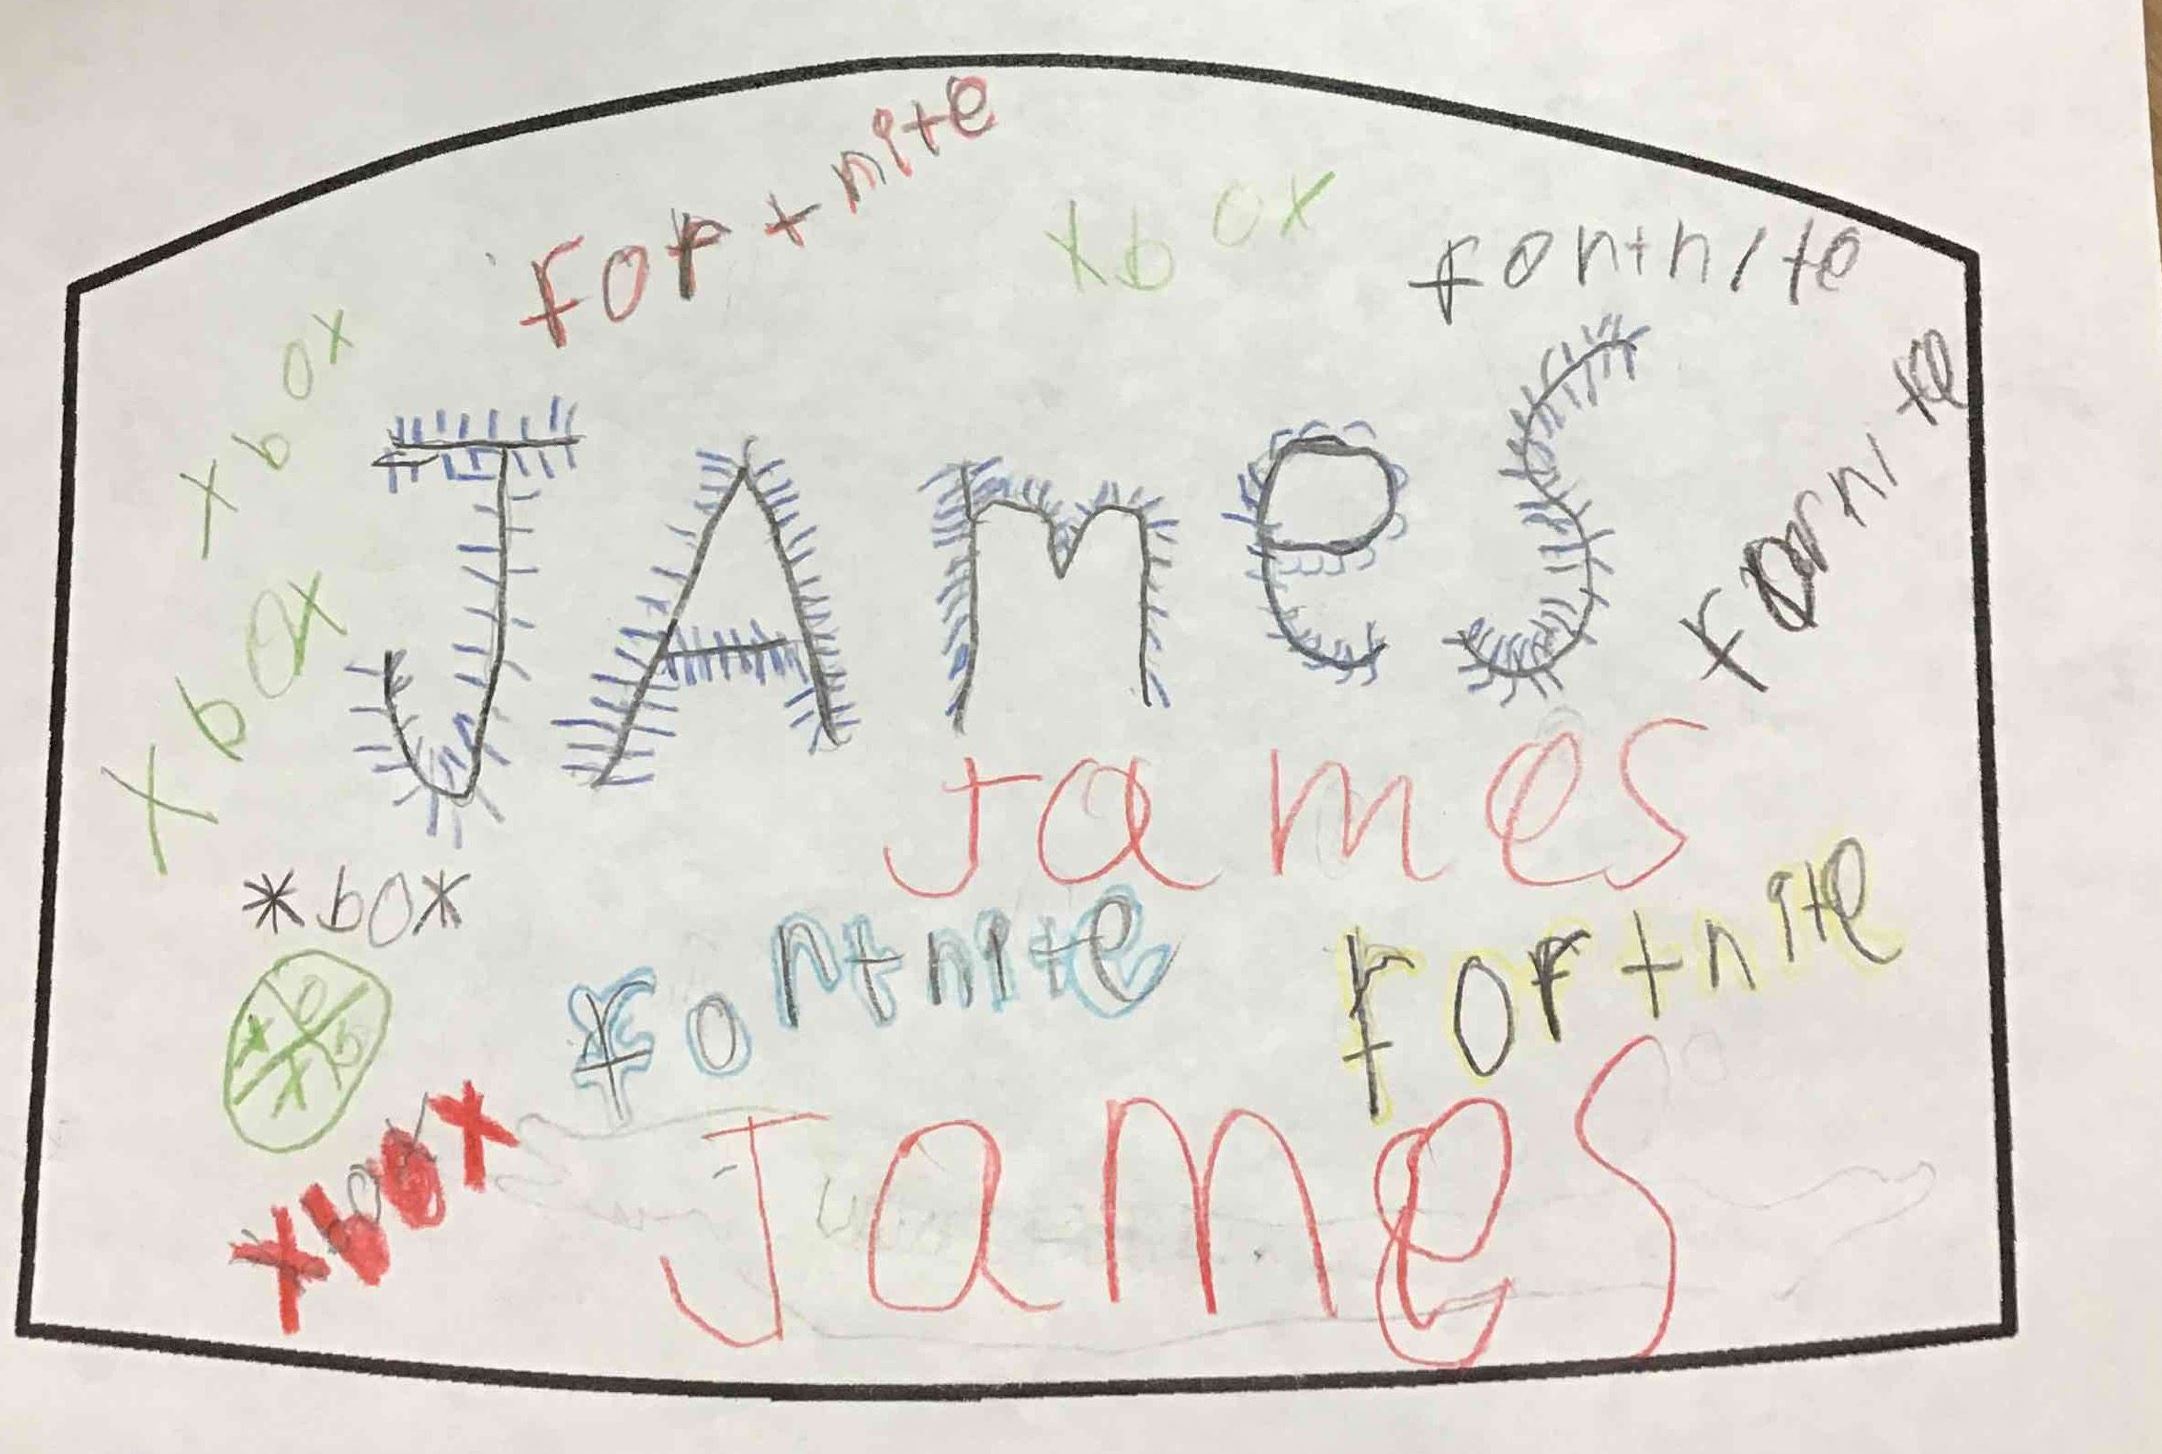 Fortnite
xbox
fortnite
xbox
JAmeS
Fornite
xbox
James
xbox
fortnite
Fortnite
xbox
xbox
James